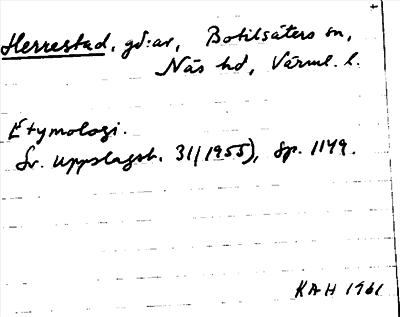 Herrestad, gd:ar, Botilsäters sn,
Näs hd, Värml. l.
Etymologi.
Sv. uppslagsb. 31 (1955), sp. 1149.
KAH 1961